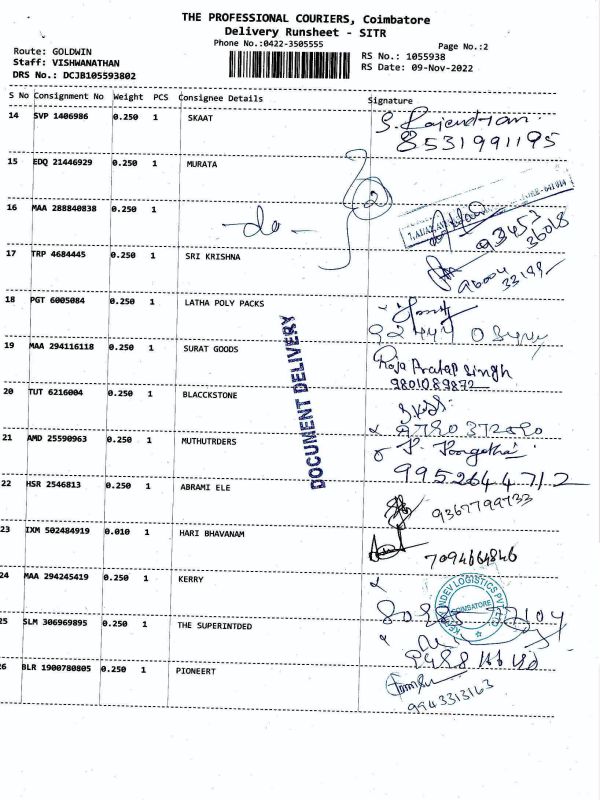 THE PROFESSIONAL COURIERS, Coimbatore
Delivery Runsheet - SITR
Phone No.:0422-3505555
Page No.:2
Route: GOLDWIN
RS No.: 1055938
Staff: VISHWANATHAN
RS Date: 09-Nov-2022
DRS No.: DCJB105593802
S No Consignment No Weight PCS Consignee Details Signature
14 SVP 1406986 0.250 1 SKAAT S. Rajendran.
8531991195
15 EDQ 21446929 0.250 1 MURATA
2
16 MAA 288840838 0.250 1 -do- 93453
36018
17 TRP 4684445 0.250 1 SRI KRISHNA
96004
18 PGT 6005084 0.250 1 LATHA POLY PACKS
19 MAA 294116118 0.250 1 SURAT GOODS Raja Pratap Singh
9801089872
20 TUT 6216004 0.250 1 BLACCKSTONE
21 AMD 25590963 0.250 1 MUTHUTRDERS
9952644712
22 HSR 2546813 0.250 1 ABRAMI ELE
9367799733
23 IXM 502484919 0.010 1 HARI BHAVANAM
7094664846
24 MAA 294245419 0.250 1 KERRY
COIMBATORE
25 SLM 306969895 0.250 1 THE SUPERINTDED
26 BLR 1900780805 0.250 1 PIONEERT
9943313163
DOCUMENT DELIVERY